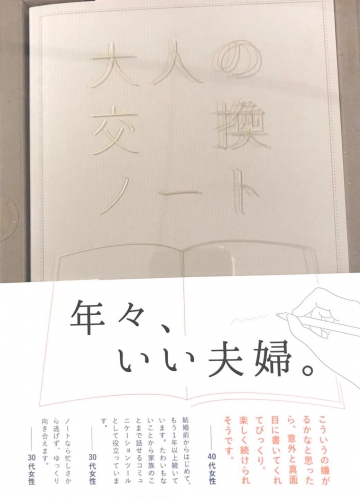 大人の
交換
ノート
年々、
いい夫婦。
こういうの嫌が
るかなと思った
ら、意外と真面
目に書いてくれ
てびっくり。
楽しく続けられ
そうです。
──40代女性
結婚前からはじめて、
もう1年以上続いて
います。たわいもな
いことから家族のこ
とまで話せるコミュ
ニケーションツール
として役立っていま
す。
──30代女性
ノートなら忙しさか
ら逃げず、ゆっくり
向き合えます。
──30代女性